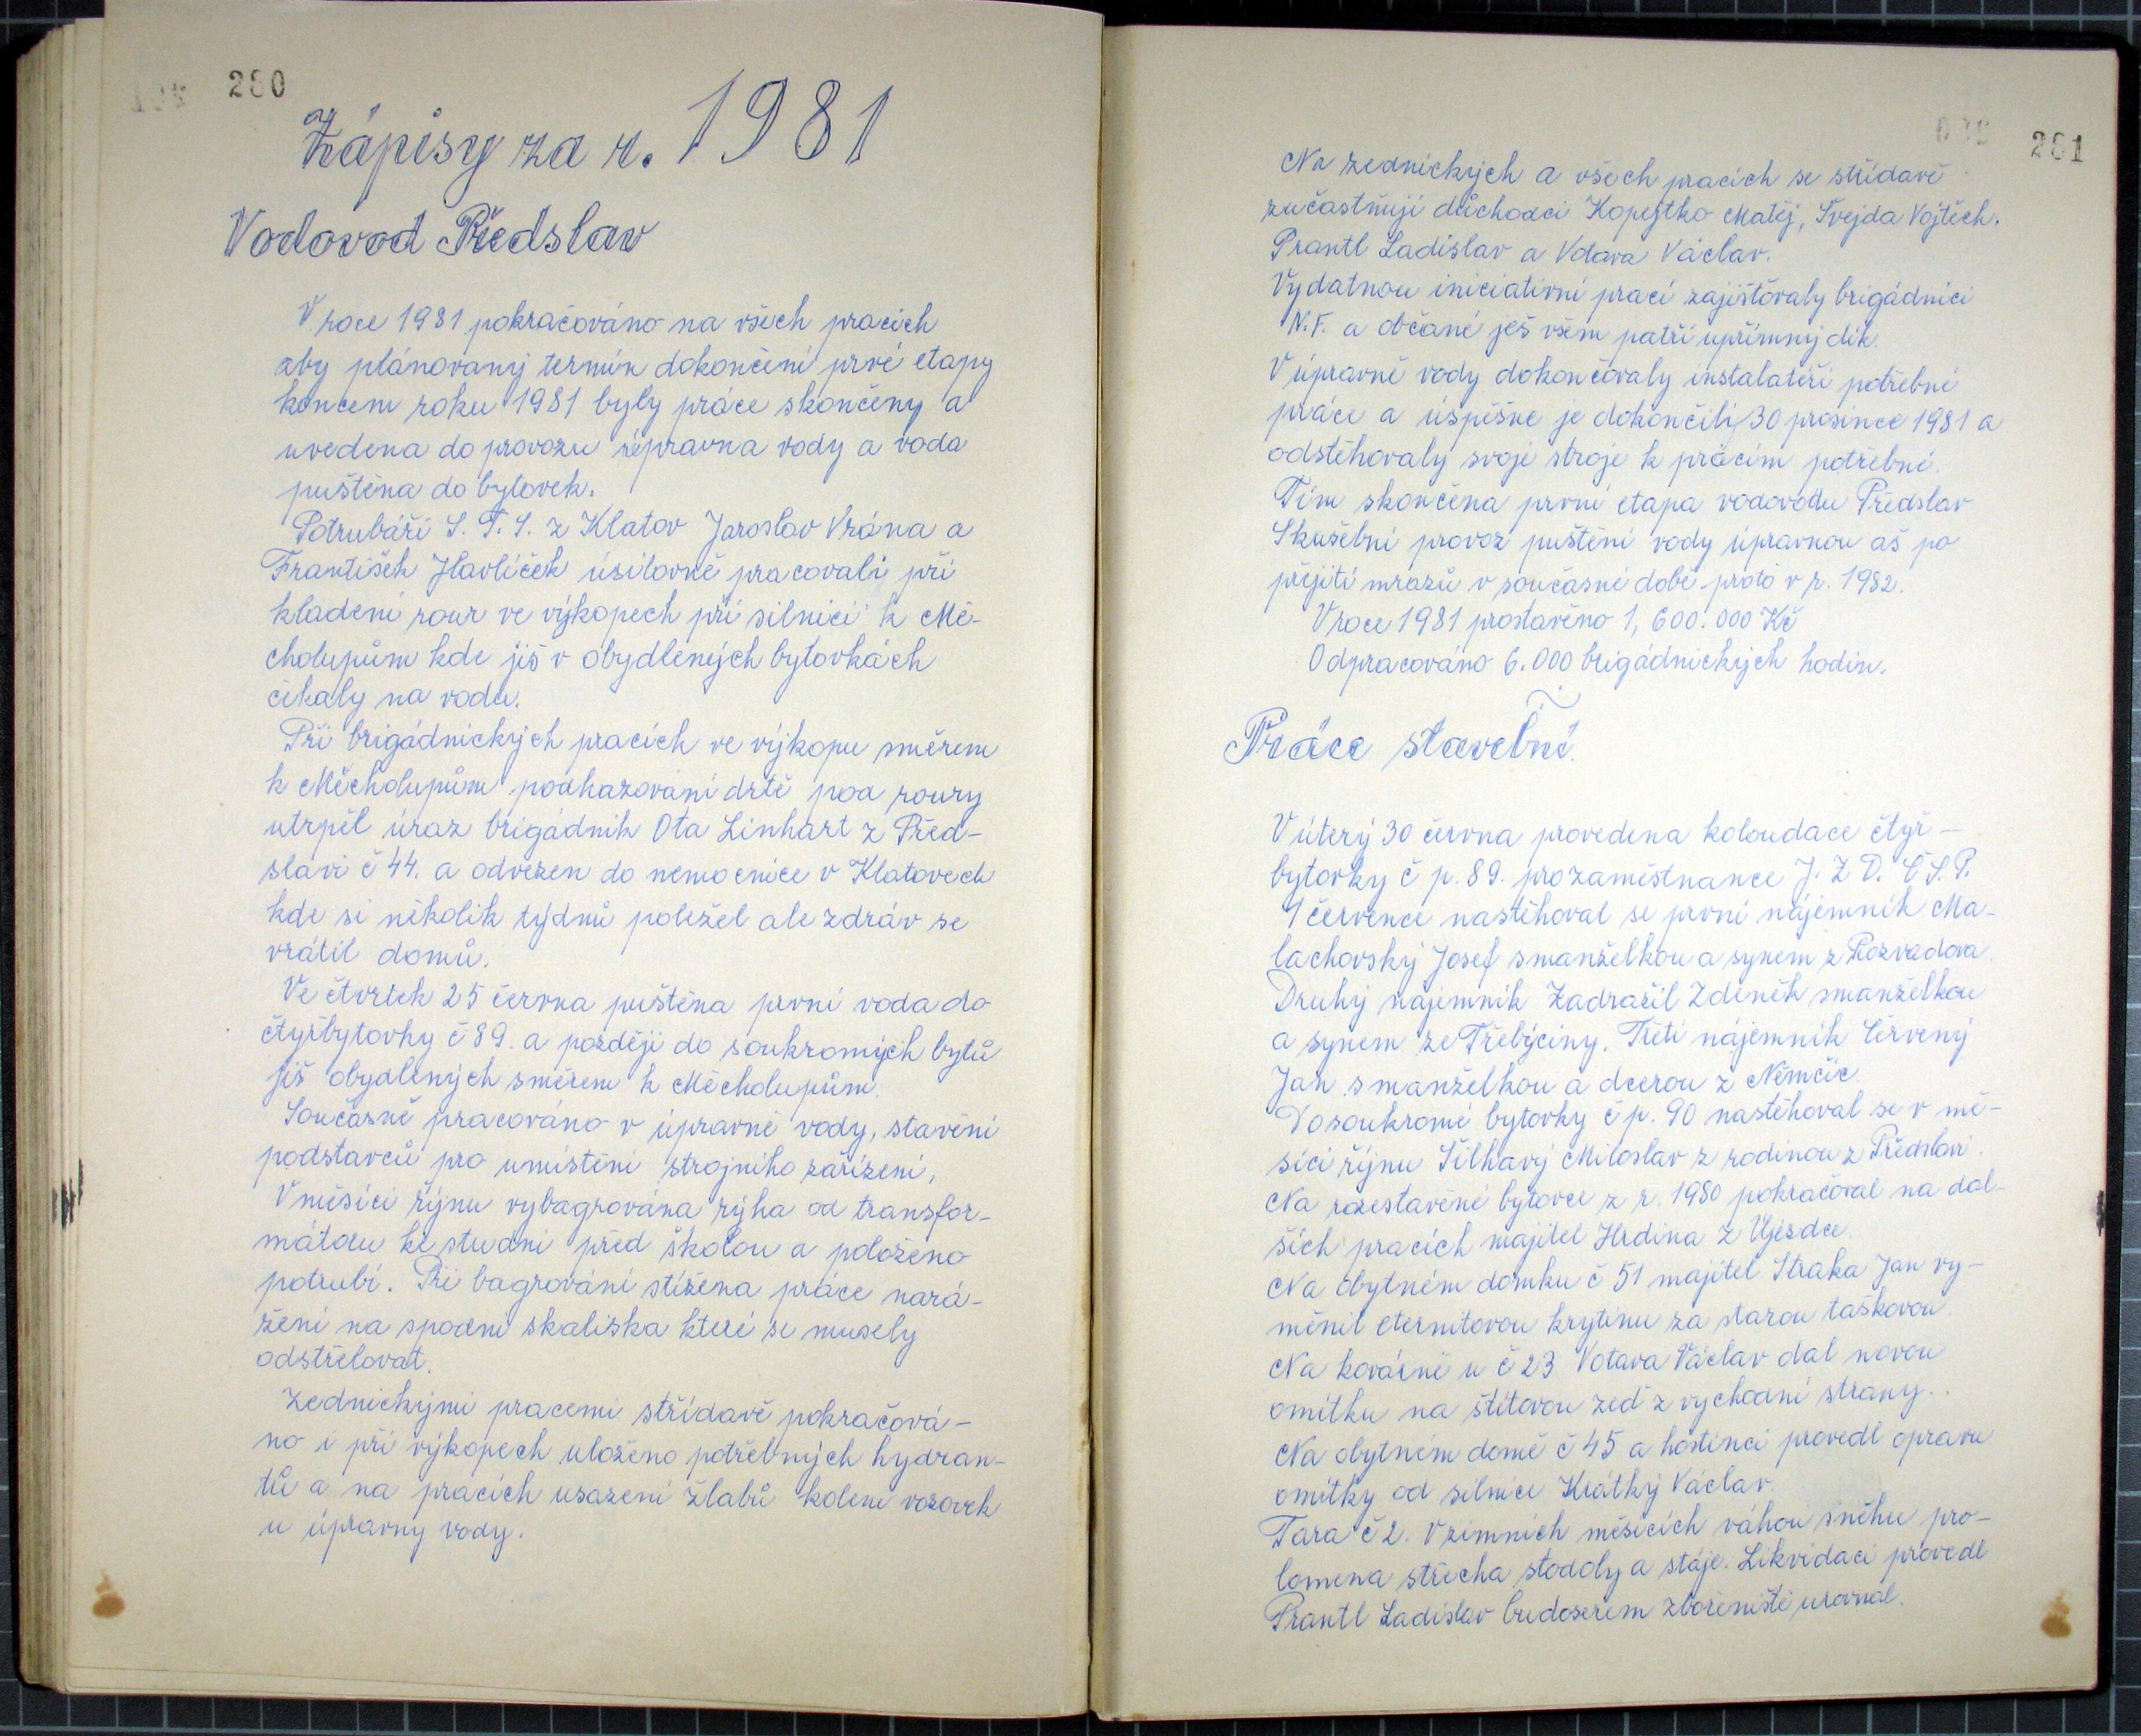 280
Zápisy za r. 1981
Vodovod Předslav
V roce 1981 pokračováno na všech pracích
aby plánovaný termín dokončení prvé etapy
koncem roku 1981 byly práce skončeny a
uvedena do provozu úpravna vody a voda
puštěna do bytovek.
Potrubáři S. T. S. z Klatov Jaroslav Vrána a
František Havlíček úsilovně pracovali při
kladení rour ve výkopech při silnici k Mě-
cholupům kde jiš v obydlených bytovkách
čekaly na vodu.
Při brigádnických pracích ve výkopu směrem
k Měcholupům podhazování drtě pod roury
utrpěl úraz brigádník Ota Linhart z Před-
slavi č 44. a odvezen do nemocnice v Klatovech
kde si několik týdnů poležel ale zdráv se
vrátil domů.
Ve čtvrtek 25 června puštěna první voda do
čtyřbytovky č 89. a později do soukromých bytů
jiš obydlených směrem k Měcholupům.
Současně pracováno v úpravně vody, stavění
podstavců pro umístění strojního zařízení,
V měsíci říjnu vybagrována rýha od transfor-
mátoru ke studni před školou a položeno
potrubí. Při bagrování stížena práce nará-
žení na spodní skaliska které se musely
odstřelovat.
Zednickými pracemi střídavě pokračová-
no i při výkopech uloženo potřebných hydran-
tů a na pracích usazení žlabů kolem vozovek
u úpravny vody.
281
Na zednických a všech pracích se střídavě
zučastňují důchodci Kopejtko Matěj, Švejda Vojtěch.
Prantl Ladislav a Votava Václav.
Vydatnou iniciativní prací zajišťovaly brigádníci
N. F. a občané ješ všem patří upřímný dík.
V úpravně vody dokončovaly instalatéři potřebné
práce a úspěšne je dokončili 30 prosince 1981 a
odstěhovaly svoje stroje k pracím potřebné.
Tím skončena první etapa vodovodu Předslav
Skušební provoz puštění vody úpravnou aš po
přejití mrazů v současné době proto v r. 1982.
V roce 1981 prostavěno 1, 600.000 Kč
Odpracováno 6.000 brigádnických hodin.
Práce stavební.
V úterý 30 června provedena koloudace čtyř-
bytovky č p. 89. pro zaměstnance J. Z D. Č S. P.
1 července nastěhoval se první nájemník Ma-
lachovský Josef s manželkou a synem z Rozvadova.
Druhý nájemník Zadražil Zdeněk s manželkou
a synem ze Třebýciny. Třetí nájemník Červený
Jan s manželkou a dcerou z Němčic.
Do soukromé bytovky č p. 90 nastěhoval se v mě-
síci říjnu Šilhavý Miloslav z rodinou z Předslavi.
Na rozestavěné bytovce z r. 1980 pokračoval na dal-
ších pracích majitel Hrdina z Újezdce.
Na obytném domku č 51 majitel Straka Jan vy-
měnil eternitovou krytinu za starou taškovou.
Na kovárně u č 23 Votava Václav dal novou
omítku na štítovou zeď z vychodní strany.
Na obytném domě č 45 a hostinci provedl opravu
omítky od silnice Krátký Václav.
Fara č 2. V zimních měsících váhou sněhu pro-
lomena střecha stodoly a stáje. Likvidaci provedl
Prantl Ladislav budoserem zbořeniště urovnal.